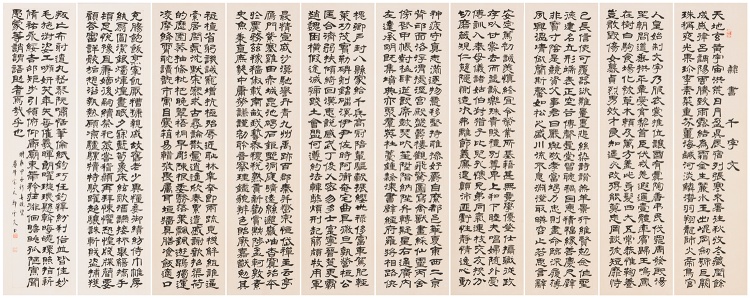 隸書千字文
天地玄黃宇宙洪荒日月盈昃辰宿列張寒來暑往秋收冬藏閏餘
成歲律呂調陽雲騰致雨露結為霜金生麗水玉出崑岡劍號巨闕
珠稱夜光果珍李柰菜重芥薑海鹹河淡鱗潛羽翔龍師火帝鳥官
人皇始制文字乃服衣裳推位讓國有虞陶唐弔民伐罪周發殷湯
坐朝問道垂拱平章愛育黎首臣伏戎羌遐邇壹體率賓歸王鳴鳳
在樹白駒食場化被草木賴及萬方蓋此身髮四大五常恭惟鞠養
豈敢毀傷女慕貞潔男效才良知過必改得能莫忘罔談彼短靡恃
己長信使可覆器欲難量墨悲絲染詩讚羔羊景行維賢克念作聖
德建名立形端表正空谷傳聲虛堂習聽禍因惡積福緣善慶尺璧
非寶寸陰是競資父事君曰嚴與敬孝當竭力忠則盡命臨深履薄
夙興溫凊似蘭斯馨如松之盛川流不息淵澄取映容止若思言辭
安定篤初誠美慎終宜令榮業所基籍甚無竟學優登仕攝職從政
存以甘棠去而益詠樂殊貴賤禮別尊卑上和下睦夫唱婦隨外受
傅訓入奉母儀諸姑伯叔猶子比兒孔懷兄弟同氣連枝交友投分
切磨箴規仁慈隱惻造次弗離節義廉退顛沛匪虧性靜情逸心動
神疲守真志滿逐物意移堅持雅操好爵自縻都邑華夏東西二京
背邙面洛浮渭據涇宮殿盤鬱樓觀飛驚圖寫禽獸畫彩仙靈丙舍
傍啟甲帳對楹肆筵設席鼓瑟吹笙升階納陛弁轉疑星右通廣內
左達承明既集墳典亦聚群英杜稿鍾隸漆書壁經府羅將相路俠
槐卿戶封八縣家給千兵高冠陪輦驅轂振纓世祿侈富車駕肥輕
策功茂實勒碑刻銘磻溪伊尹佐時阿衡奄宅曲阜微旦孰營桓公
匡合濟弱扶傾綺回漢惠說感武丁俊乂密勿多士寔寧晉楚更霸
趙魏困橫假途滅虢踐土會盟何遵約法韓弊煩刑起翦頗牧用軍
最精宣威沙漠馳譽丹青九州禹跡百郡秦并嶽宗恆岱禪主云亭
雁門紫塞雞田赤城昆池碣石鉅野洞庭曠遠綿邈巖岫杳冥治本
於農務茲稼穡俶載南畝我藝黍稷稅熟貢新勸賞黜陟孟軻敦素
史魚秉直庶幾中庸勞謙謹敕聆音察理鑑貌辨色貽厥嘉猷勉其
祗植省躬譏誡寵增抗極殆辱近恥林皋幸即兩疏見機解組誰逼
索居閒處沉默寂寥求古尋論散慮逍遙欣奏累遣慼謝歡招渠荷
的歷園莽抽條枇杷晚翠梧桐早凋陳根委翳落葉飄颻遊鵾獨運
凌摩絳霄耽讀翫市寓目囊箱易輶攸畏屬耳垣牆具膳餐飯適口
充腸飽飫烹宰飢厭糟糠親戚故舊老少異糧妾御績紡侍巾帷房
紈扇圓潔銀燭煒煌晝眠夕寐藍筍象床絃歌酒讌接杯舉觴矯手
頓足悅豫且康嫡後嗣續祭祀烝嘗稽顙再拜悚懼恐惶牋牒簡要
顧答審詳骸垢想浴執熱願涼驢騾犢特駭躍超驤誅斬賊盜捕獲
叛亡布射遼丸嵇琴阮嘯恬筆倫紙鈞巧任釣釋紛利俗並皆佳妙
毛施淑姿工顰妍笑年矢每催曦暉朗曜璇璣懸斡晦魄環照指薪
修祜永綏吉劭矩步引領俯仰廊廟束帶矜莊徘徊瞻眺孤陋寡聞
愚蒙等誚謂語助者焉哉乎也